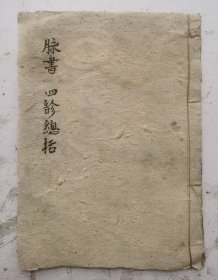 脉书 四診總括